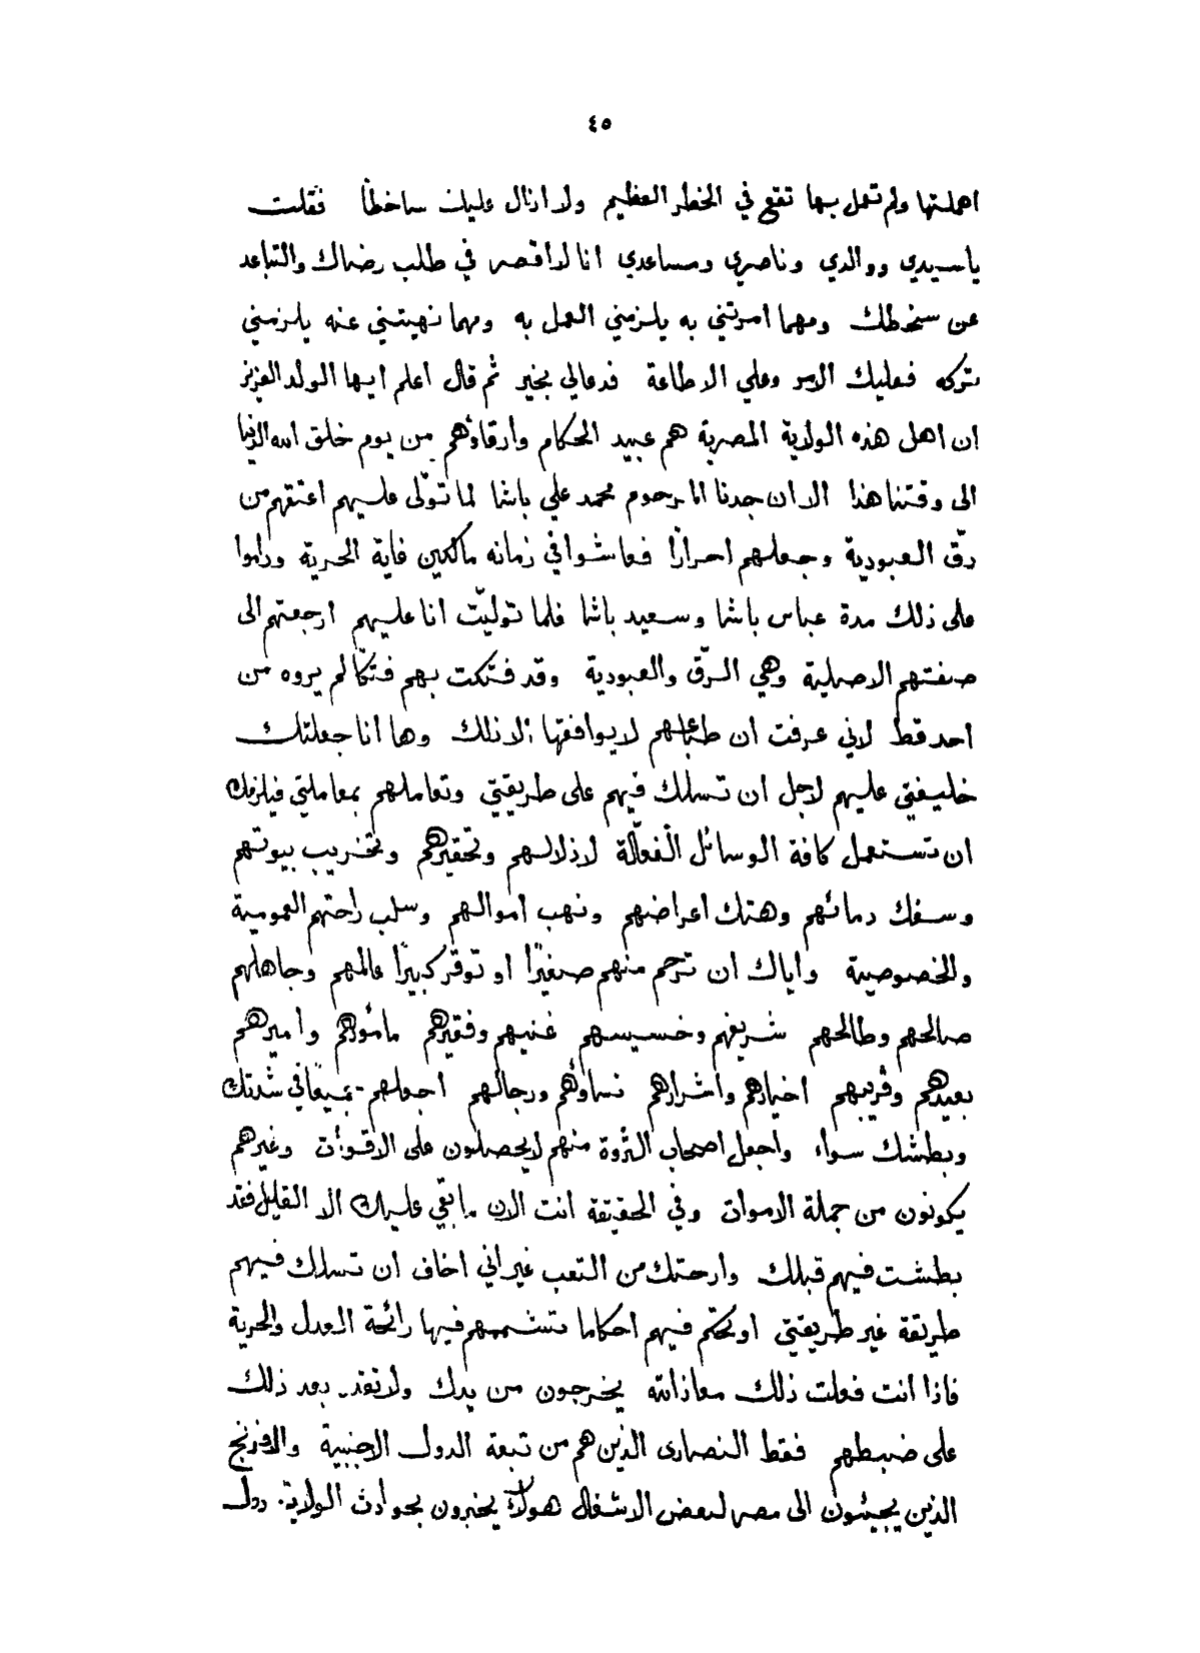 ٤٥
اهملتها ولم تعمل بها تقع في الخطر العظيم ولا ازال عليك ساخطاً فقلت
ياسيدي ووالدي وناصري ومساعدي انا لا اقصر في طلب رضاك والتباعد
عن سخطك ومهما امرتني به يلزمني العمل به ومهما نهيتني عنه يلزمني
تركه فعليك الامر وعلي الاطاعة فدعالي بخير ثم قال اعلم ايها الولد العزيز
ان اهل هذه الولاية المصرية هم عبيد الحكام وارقاؤهم من يوم خلق الله الدنيا
الى وقتنا هذا الا ان جدنا المرحوم محمد علي باشا لما تولّى عليهم اعتقهم من
رقّ العبودية وجعلهم احراراً فعاشوا في زمانه مالكين غاية الحرية وداموا
على ذلك مدة عباس باشا وسعيد باشا فلما توليّت انا عليهم ارجعتهم الى
صفتهم الاصلية وهي الرّق والعبودية وقد فتكت بهم فتكّا لم يروه من
احد قط لاني عرفت ان طباعهم لا يوافقها الا ذلك وها انا جعلتك
خليفتي عليهم لاجل ان تسلك فيهم على طريقتي وتعاملهم بمعاملتي فيلزمك
ان تستعمل كافة الوسائل الفعالّة لاذلالهم وتحقيرهم وتخريب بيوتهم
وسفك دمائهم وهتك اعراضهم ونهب اموالهم وسلب راحتهم العمومية
والخصوصية واياك ان ترحم منهم صغيرًا او توقر كبيرًا عالمهم وجاهلهم
صالحهم وطالحهم شريفهم وخسيسهم غنيهم وفقيرهم مأمورهم واميرهم
بعيدهم وقريبهم اخيارهم واشرارهم نساؤهم ورجالهم اجعلهم جميعًا في شدتك
وبطشك سواء واجعل اصحاب الثروة منهم لا يحصلون على الاقوات وغيرهم
يكونون من جملة الاموات وفي الحقيقة انت الان ما بقي عليك الا القليل فقد
بطشت فيهم قبلك وارحتك من التعب غير اني اخاف ان تسلك فيهم
طريقة غير طريقتي او تحكم فيهم احكاما تشممهم فيها رائحة العدل والحرية
فاذا انت فعلت ذلك معاذ الله يخرجون من يدك ولا تقدر بعد ذلك
على ضبطهم فقط النصارى الذين هم من تبعة الدول الاجنبية والافرنج
الذين يجيئون الى مصر لبعض الاشغال هولاء يخبرون بحوادث الولاية دول